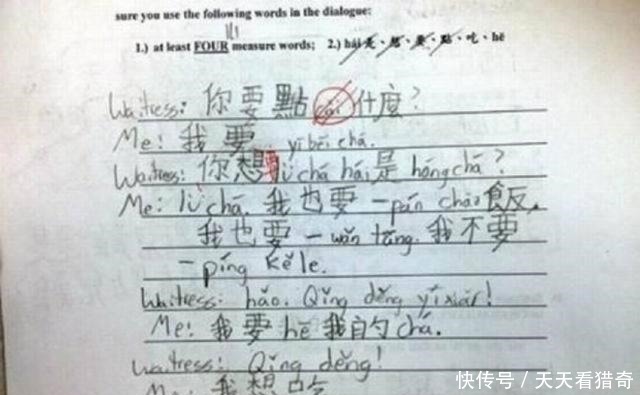 sure you use the following words in the dialogue:
1.) at least FOUR measure words; 2.) hái 是、想、要、點、吃、hē
Waitress: 你要點 cài 什麼?
Me: 我要 yī bēi chá.
Waitress: 你想要 lǜ chá hái 是 hóng chá?
Me: lǜ chá. 我也要一 pán chǎo 飯,
我也要一 wǎn tāng. 我不要
一 píng kě lè.
Waitress: hǎo. Qǐng děng yíxiàr!
Me: 我要 hē 我的 chá.
Waitress: Qǐng děng!
Me: 我想吃
快传号/天天看猎奇